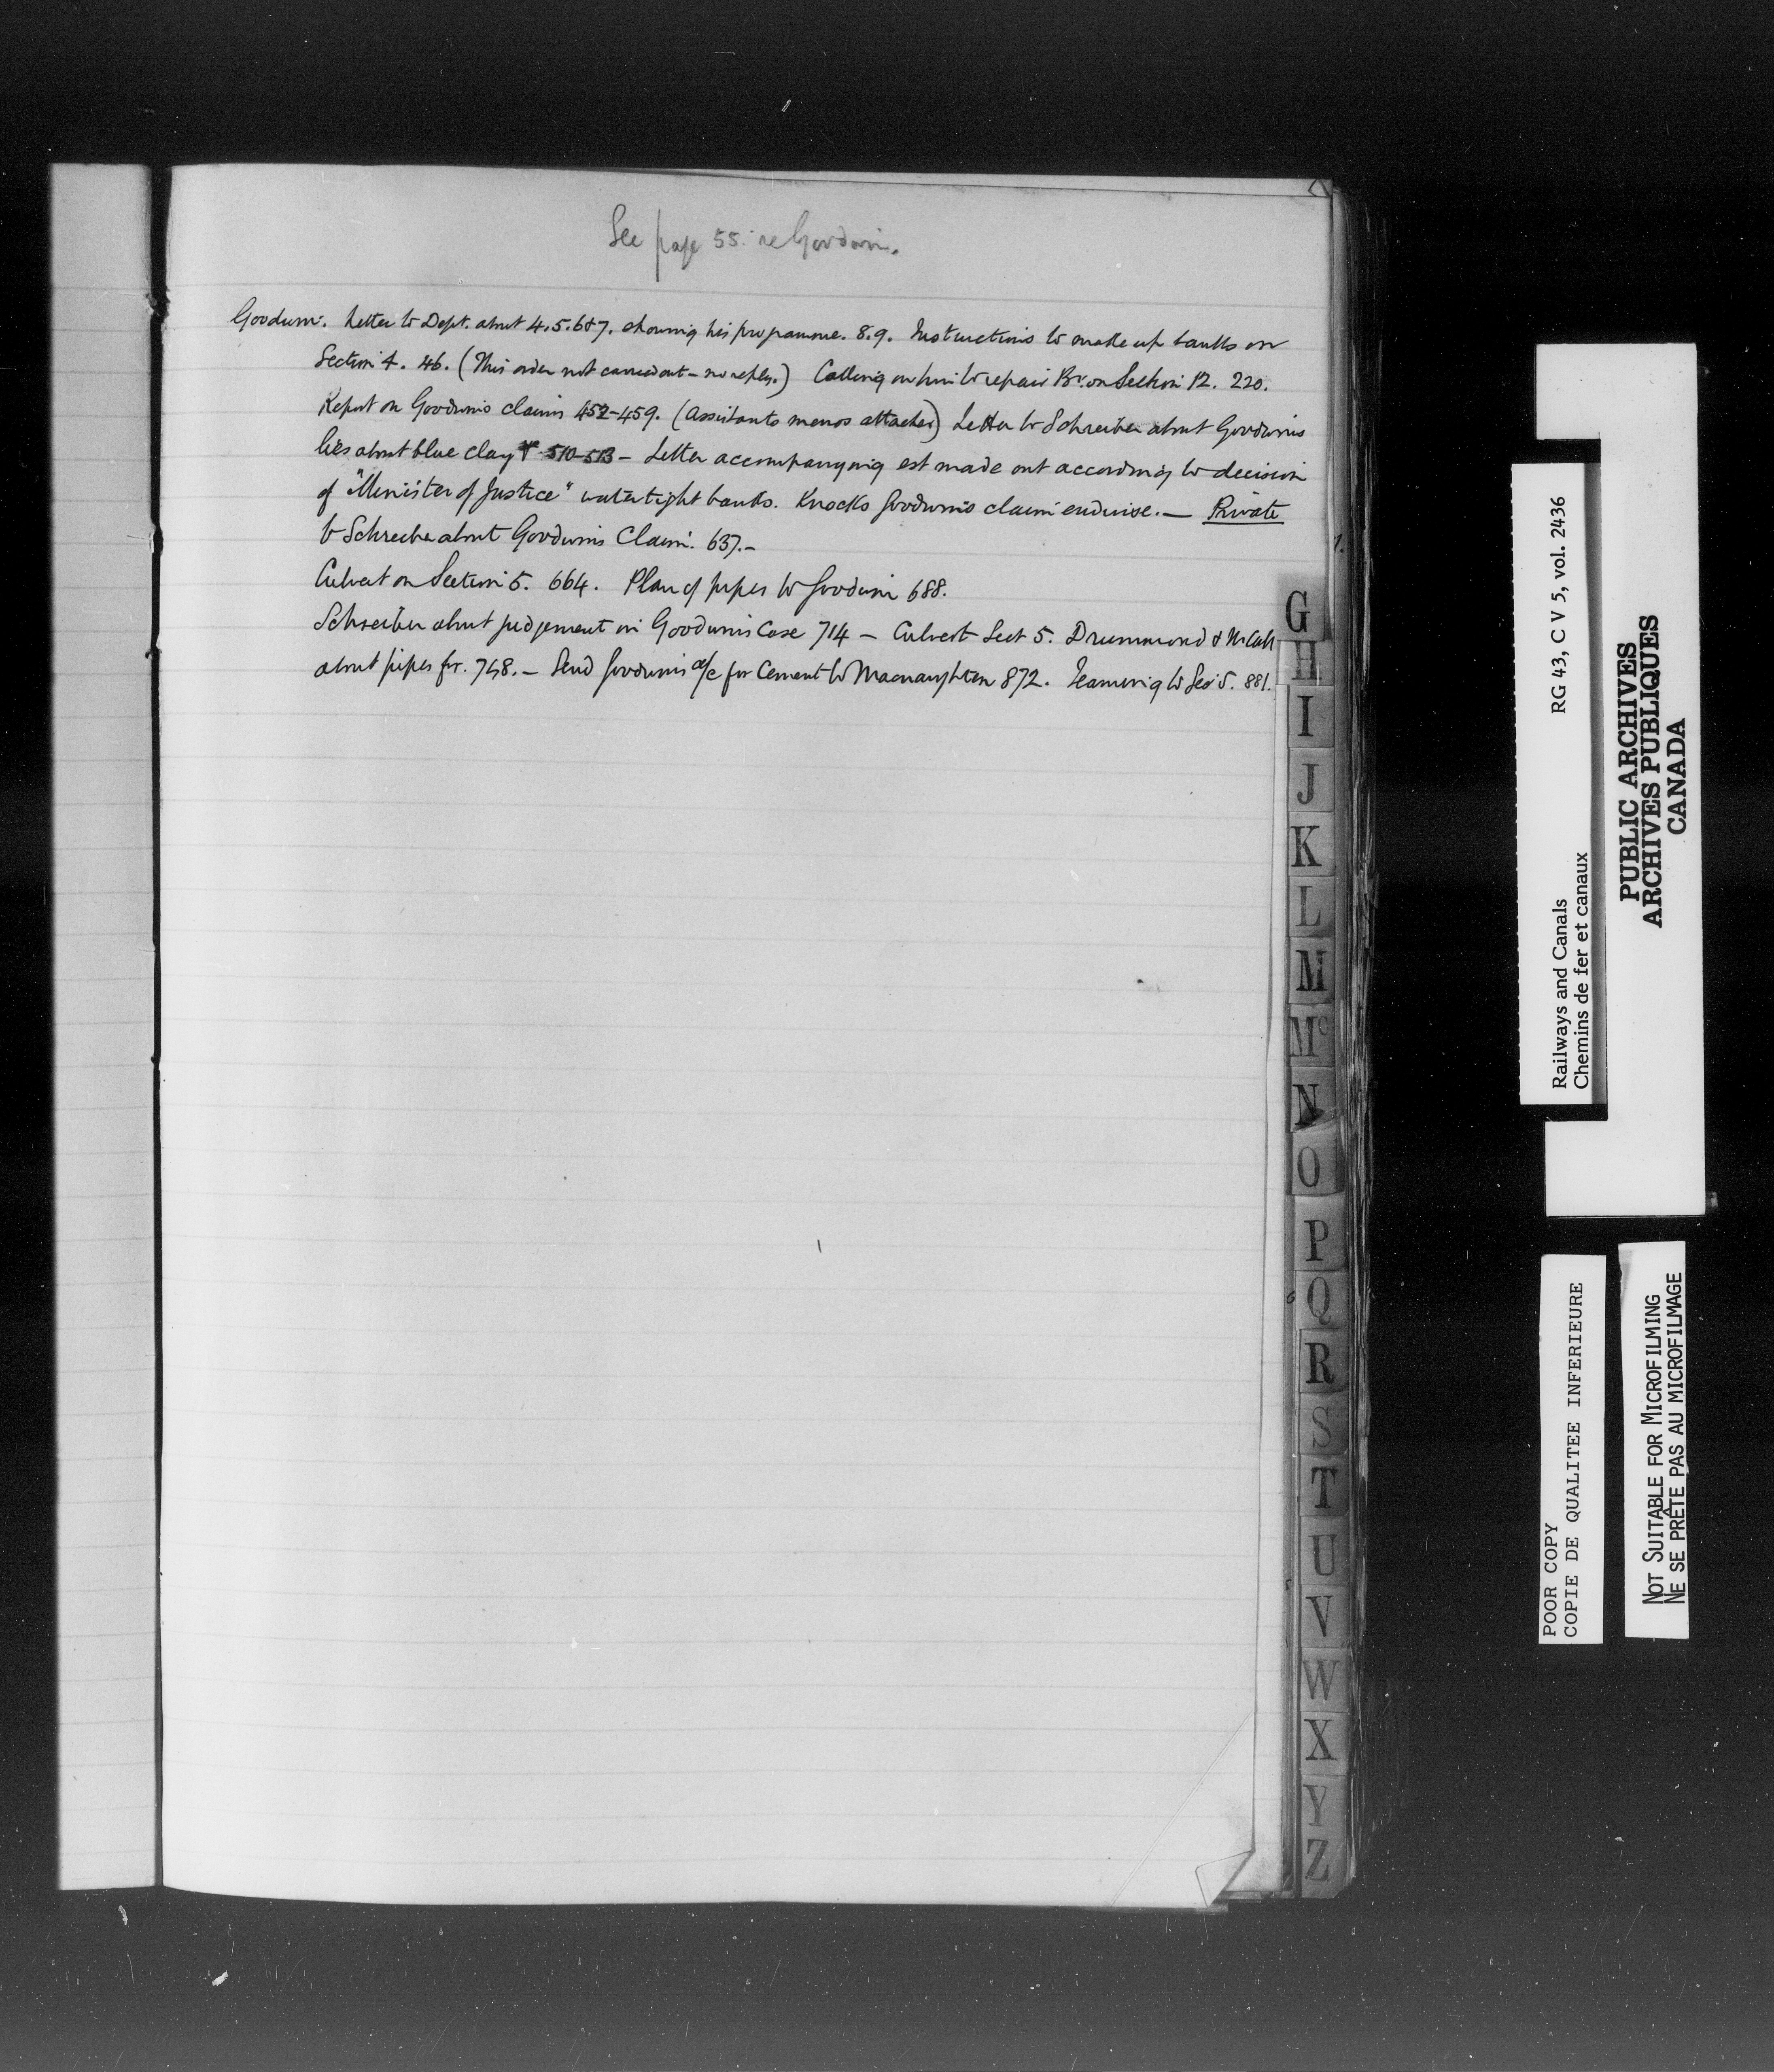 See page 55. re Goodwin.
Goodwin. Letter to Dept. about 4.5.6&7. showing his programme. 8.9. Instructions to make up banks on
Section 4. 46. (This order not carried out - no reply.) Calling on him to repair Br. on Section 12. 220.
Report on Goodwins claims 452-459. (assistants memos attached) Letter to Schreiber about Goodwins
lies about blue clay 510-513 - Letter accompanying est made out according to decision
of "Minister of Justice" watertight banks. Knocks Goodwins claim endwise. — Private
to Schreiber about Goodwins Claim. 637.-
Culvert on Section 5. 664. Plan of pipes to Goodwin 688.
Schreiber about judgement in Goodwins Case 714 - Culvert Sect 5. Drummond & McCall
about pipes for. 748. - Send Goodwins a/c for Cement to Macnaughten 872. Teaming to Sec 5. 881.
G
H
I
J
K
L
M
Mc
N
O
P
Q
R
S
T
U
V
W
X
Y
Z
Railways and Canals RG 43, C V 5, vol. 2436
Chemins de fer et canaux
PUBLIC ARCHIVES
ARCHIVES PUBLIQUES
CANADA
POOR COPY
COPIE DE QUALITEE INFERIEURE
NOT SUITABLE FOR MICROFILMING
NE SE PRÊTE PAS AU MICROFILMAGE